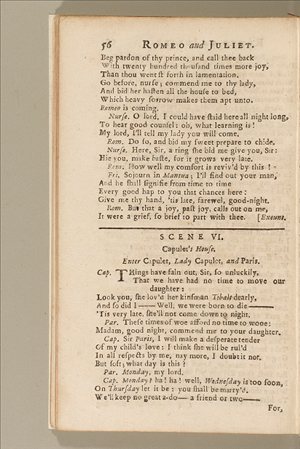 56 ROMEO and JULIET.
Beg pardon of thy prince, and call thee back
With twenty hundred thousand times more joy,
Than thou went'st forth in lamentation.
Go before, nurse; commend me to thy lady,
And bid her hasten all the house to bed,
Which heavy sorrow makes them apt unto.
Romeo is coming.
Nurse. O lord, I could have staid here all night long,
To hear good counsel: oh, what learning is!
My lord, I'll tell my lady you will come.
Rom. Do so, and bid my sweet prepare to chide.
Nurse. Here, Sir, a ring she bid me give you, Sir:
Hie you, make haste, for it grows very late.
Rom. How well my comfort is reviv'd by this!
Fri. Sojourn in Mantua; I'll find out your man,
And he shall signifie from time to time
Every good hap to you that chances here:
Give me thy hand, 'tis late, farewel, good-night.
Rom. But that a joy, past joy, calls out on me,
It were a grief, so brief to part with thee. [Exeunt.
SCENE VI.
Capulet's House.
Enter Capulet, Lady Capulet, and Paris.
Cap. THings have faln out, Sir, so unluckily,
That we have had no time to move our
daughter:
Look you, she lov'd her kinsman Tibalt dearly,
And so did I —— Well, we were born to die ——
'Tis very late, she'll not come down to night.
Par. These times of woe afford no time to wooe:
Madam, good night, commend me to your daughter.
Cap. Sir Paris, I will make a desperate tender
Of my child's love: I think she will be rul'd
In all respects by me, nay more, I doubt it not.
But soft; what day is this?
Par. Monday, my lord.
Cap. Monday? ha! ha! well, Wednesday is too soon,
On Thursday let it be: you shall be marry'd.
We'll keep no great a-do— a friend or two——
For,